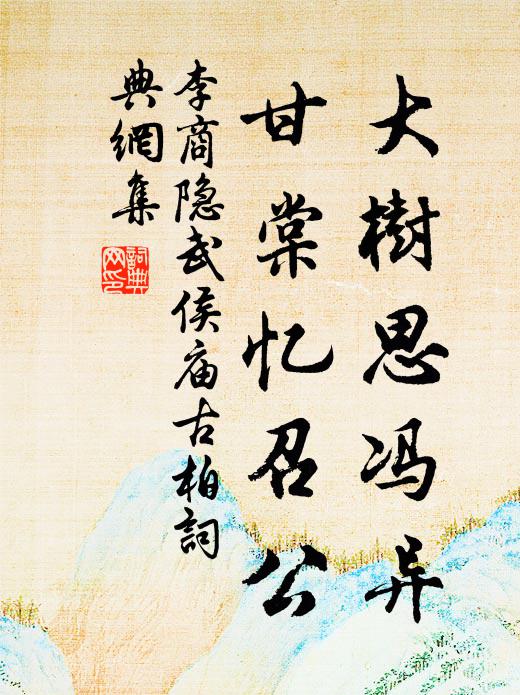 大樹思冯异
甘棠忆召公
李商隐武侯庙古柏詞
典網集
詞典
网印